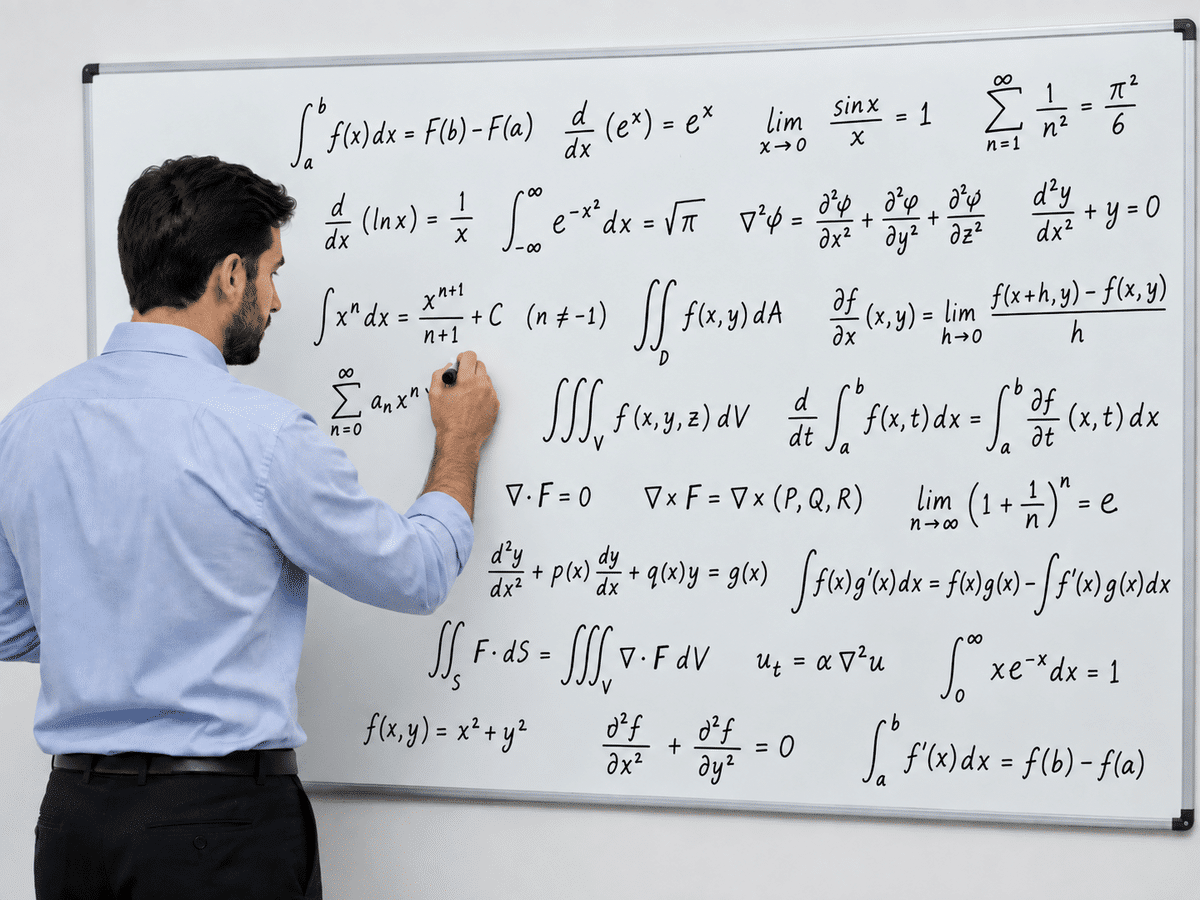 ∫_a^b f(x) dx = F(b) - F(a)   d/dx (e^x) = e^x   lim_{x→0} sin x / x = 1   ∑_{n=1}^∞ 1/n² = π²/6
d/dx (ln x) = 1/x   ∫_{-∞}^∞ e^{-x²} dx = √π   ∇²φ = ∂²φ/∂x² + ∂²φ/∂y² + ∂²φ/∂z²   d²y/dx² + y = 0
∫ x^n dx = x^{n+1}/(n+1) + C (n ≠ -1)   ∬_D f(x,y) dA   ∂f/∂x (x,y) = lim_{h→0} (f(x+h,y) - f(x,y))/h
∑_{n=0}^∞ a_n x^n   ∭_V f(x,y,z) dV   d/dt ∫_a^b f(x,t) dx = ∫_a^b ∂f/∂t (x,t) dx
∇·F = 0   ∇×F = ∇×(P,Q,R)   lim_{n→∞} (1 + 1/n)^n = e
d²y/dx² + p(x) dy/dx + q(x)y = g(x)   ∫ f(x)g'(x)dx = f(x)g(x) - ∫ f'(x)g(x)dx
∬_S F·dS = ∭_V ∇·F dV   u_t = α∇²u   ∫_0^∞ xe^{-x} dx = 1
f(x,y) = x² + y²   ∂²f/∂x² + ∂²f/∂y² = 0   ∫_a^b f'(x) dx = f(b) - f(a)